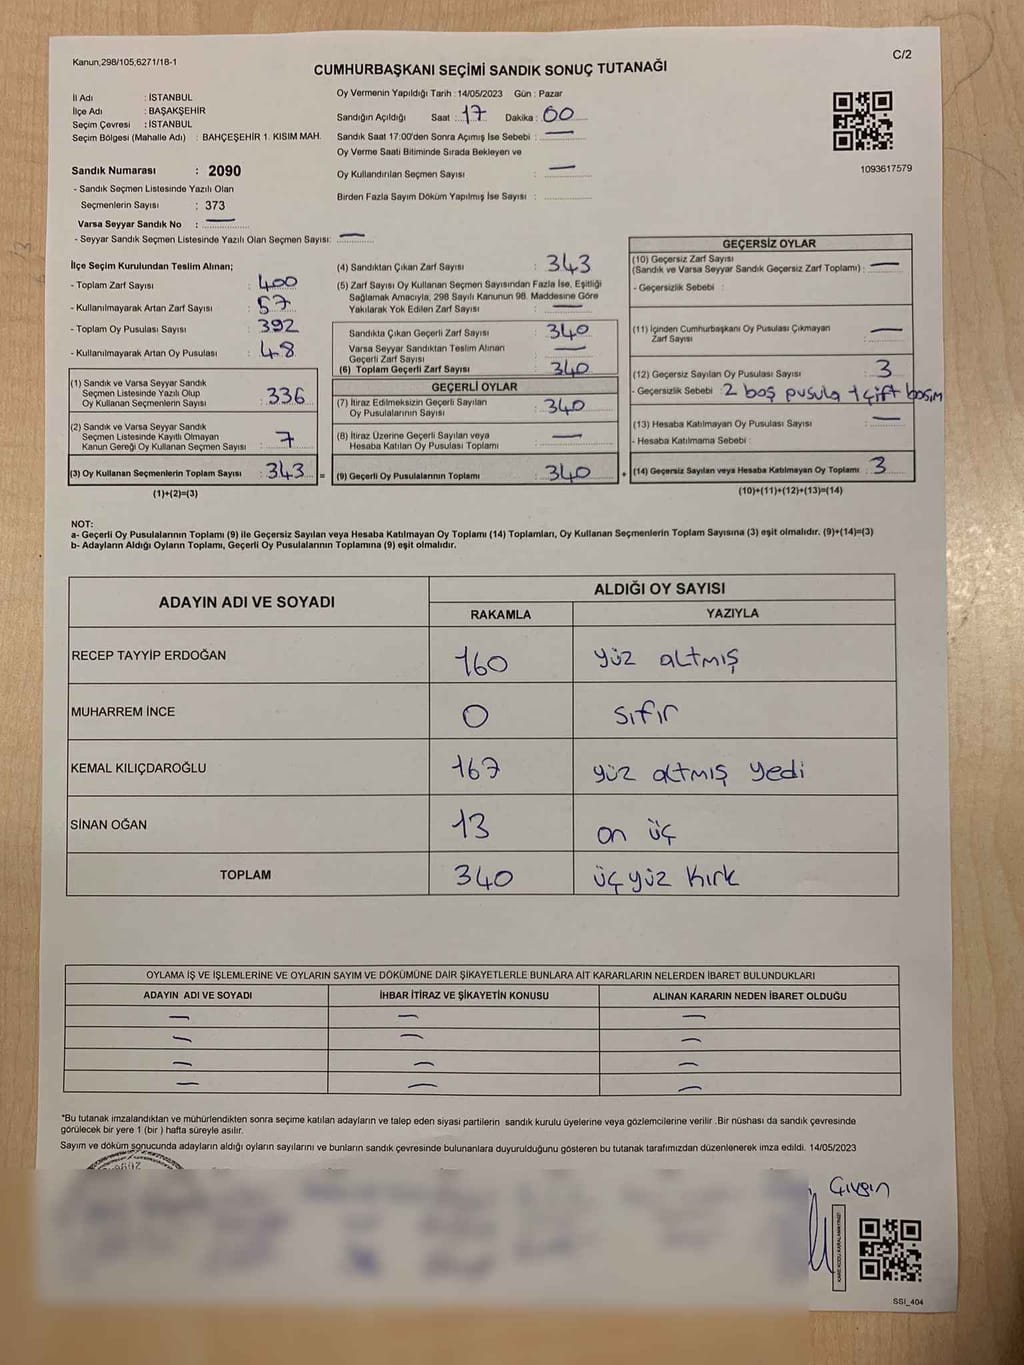 Kanun,298/105,6271/18-1
C/2
CUMHURBAŞKANI SEÇİMİ SANDIK SONUÇ TUTANAĞI
İl Adı : İSTANBUL
İlçe Adı : BAŞAKŞEHİR
Seçim Çevresi : İSTANBUL
Seçim Bölgesi (Mahalle Adı) : BAHÇEŞEHİR 1. KISIM MAH.
Sandık Numarası : 2090
- Sandık Seçmen Listesinde Yazılı Olan
Seçmenlerin Sayısı : 373
Varsa Seyyar Sandık No : —
- Seyyar Sandık Seçmen Listesinde Yazılı Olan Seçmen Sayısı: —
Oy Vermenin Yapıldığı Tarih : 14/05/2023 Gün : Pazar
Sandığın Açıldığı Saat : 17 Dakika : 00
Sandık Saat 17:00'den Sonra Açımış İse Sebebi : —
Oy Verme Saati Bitiminde Sırada Bekleyen ve
Oy Kullandırılan Seçmen Sayısı : —
Birden Fazla Sayım Döküm Yapılmış İse Sayısı :
1093617579
İlçe Seçim Kurulundan Teslim Alınan;
- Toplam Zarf Sayısı : 400
- Kullanılmayarak Artan Zarf Sayısı : 57
- Toplam Oy Pusulası Sayısı : 392
- Kullanılmayarak Artan Oy Pusulası : 48
(1) Sandık ve Varsa Seyyar Sandık
Seçmen Listesinde Yazılı Olup
Oy Kullanan Seçmenlerin Sayısı : 336
(2) Sandık ve Varsa Seyyar Sandık
Seçmen Listesinde Kayıtlı Olmayan
Kanun Gereği Oy Kullanan Seçmen Sayısı : 7
(3) Oy Kullanan Seçmenlerin Toplam Sayısı : 343 =
(1)+(2)=(3)
(4) Sandıktan Çıkan Zarf Sayısı : 343
(5) Zarf Sayısı Oy Kullanan Seçmen Sayısından Fazla İse, Eşitliği
Sağlamak Amacıyla, 298 Sayılı Kanunun 98. Maddesine Göre
Yakılarak Yok Edilen Zarf Sayısı : —
Sandıkta Çıkan Geçerli Zarf Sayısı : 340
Varsa Seyyar Sandıktan Teslim Alınan
Geçerli Zarf Sayısı : —
(6) Toplam Geçerli Zarf Sayısı : 340
GEÇERLİ OYLAR
(7) İtiraz Edilmeksizin Geçerli Sayılan
Oy Pusulalarının Sayısı : 340
(8) İtiraz Üzerine Geçerli Sayılan veya
Hesaba Katılan Oy Pusulası Toplamı : —
(9) Geçerli Oy Pusulalarının Toplamı : 340 +
GEÇERSİZ OYLAR
(10) Geçersiz Zarf Sayısı
(Sandık ve Varsa Seyyar Sandık Geçersiz Zarf Toplamı) : —
- Geçersizlik Sebebi :
(11) İçinden Cumhurbaşkanı Oy Pusulası Çıkmayan
Zarf Sayısı : —
(12) Geçersiz Sayılan Oy Pusulası Sayısı : 3
- Geçersizlik Sebebi : 2 boş pusula 1 çift basım
(13) Hesaba Katılmayan Oy Pusulası Sayısı : —
- Hesaba Katılmama Sebebi :
(14) Geçersiz Sayılan veya Hesaba Katılmayan Oy Toplamı : 3
(10)+(11)+(12)+(13)=(14)
NOT:
a- Geçerli Oy Pusulalarının Toplamı (9) ile Geçersiz Sayılan veya Hesaba Katılmayan Oy Toplamı (14) Toplamları, Oy Kullanan Seçmenlerin Toplam Sayısına (3) eşit olmalıdır. (9)+(14)=(3)
b- Adayların Aldığı Oyların Toplamı, Geçerli Oy Pusulalarının Toplamına (9) eşit olmalıdır.
ADAYIN ADI VE SOYADI
ALDIĞI OY SAYISI
RAKAMLA YAZIYLA
RECEP TAYYİP ERDOĞAN 160 yüz altmış
MUHARREM İNCE 0 sıfır
KEMAL KILIÇDAROĞLU 167 yüz altmış yedi
SİNAN OĞAN 13 on üç
TOPLAM 340 üç yüz kırk
OYLAMA İŞ VE İŞLEMLERİNE VE OYLARIN SAYIM VE DÖKÜMÜNE DAİR ŞİKAYETLERLE BUNLARA AİT KARARLARIN NELERDEN İBARET BULUNDUKLARI
ADAYIN ADI VE SOYADI İHBAR İTİRAZ VE ŞİKAYETİN KONUSU ALINAN KARARIN NEDEN İBARET OLDUĞU
— — —
— — —
— — —
— — —
*Bu tutanak imzalandıktan ve mühürlendikten sonra seçime katılan adayların ve talep eden siyasi partilerin sandık kurulu üyelerine veya gözlemcilerine verilir .Bir nüshası da sandık çevresinde
görülecek bir yere 1 (bir ) hafta süreyle asılır.
Sayım ve döküm sonucunda adayların aldığı oyların sayılarını ve bunların sandık çevresinde bulunanlara duyurulduğunu gösteren bu tutanak tarafımızdan düzenlenerek imza edildi. 14/05/2023
SSI_404